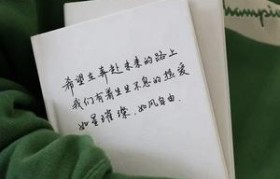 希望在奔赴未来的路上
我们有着生生不息的热爱
如星璀璨.如风自由.